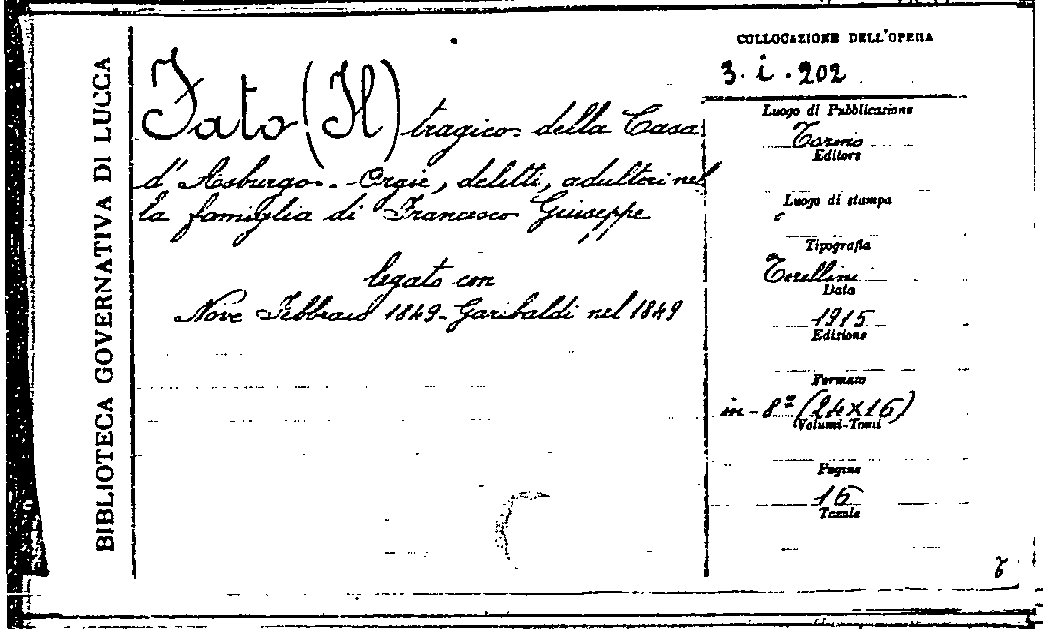 BIBLIOTECA GOVERNATIVA DI LUCCA
Fato (Il) tragico della Casa
d'Asburgo. - Orgie, delitti, adulteri nel
la famiglia di Francesco Giuseppe
legato con
Nove Febbraio 1849 - Garibaldi nel 1849
COLLOCAZIONE DELL'OPERA
3. i. 202
Luogo di Pubblicazione
Torino
Editore
Luogo di stampa
Tipografia
Torellini
Data
1915
Edizione
Formato
in-8º (24×16)
Volumi-Tomi
Pagine
16
Tavole